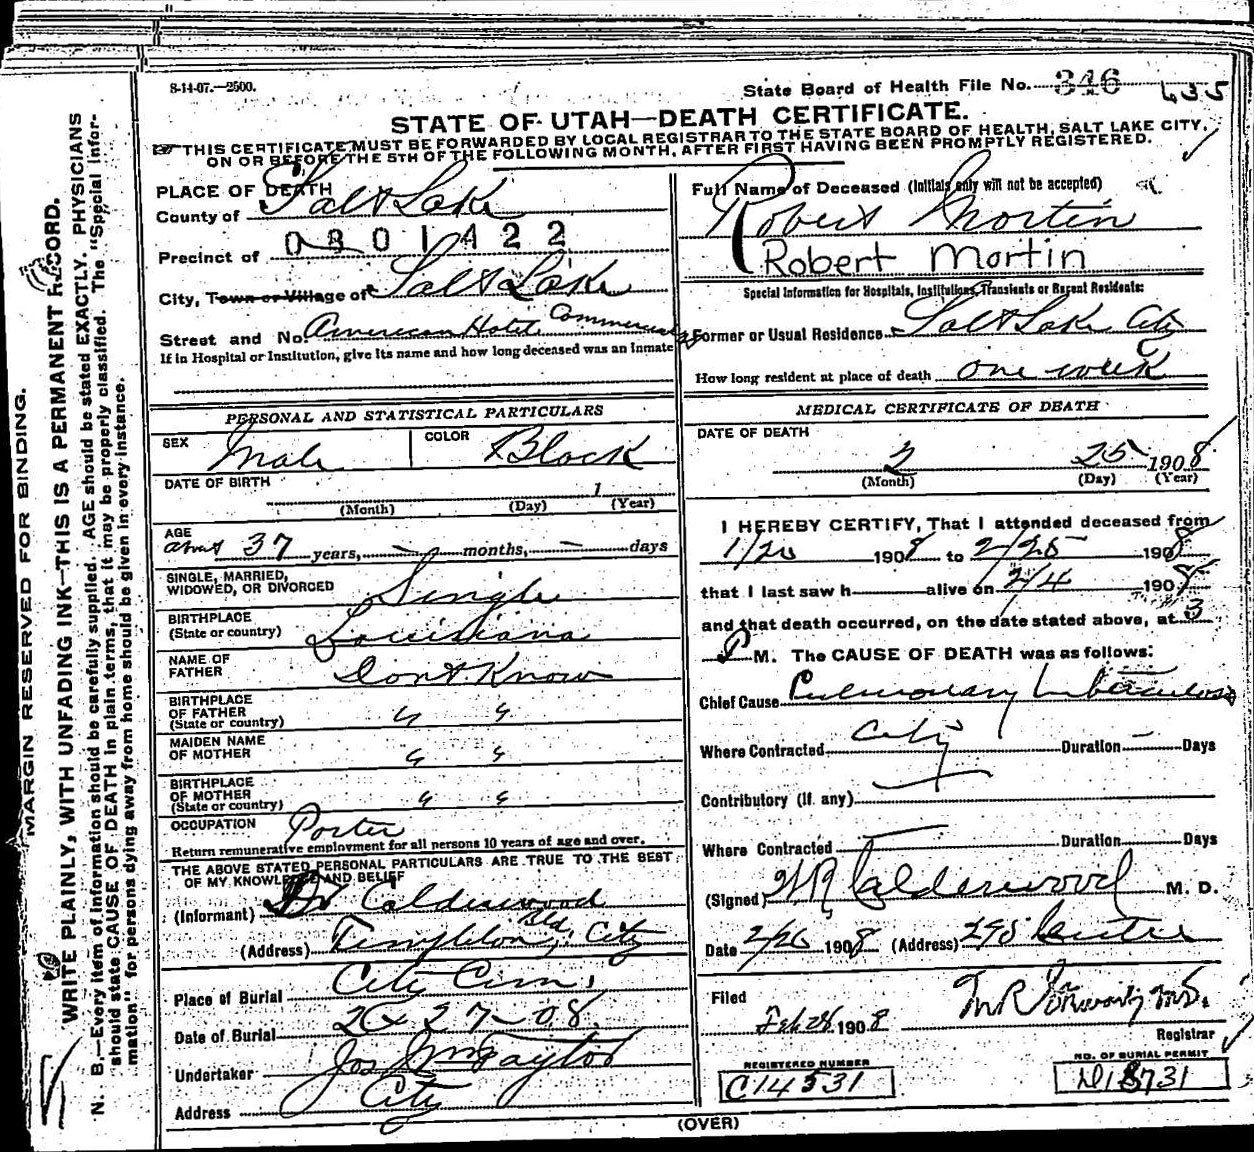 8-14-07.—2500.
State Board of Health File No. 346 635
STATE OF UTAH—DEATH CERTIFICATE.
THIS CERTIFICATE MUST BE FORWARDED BY LOCAL REGISTRAR TO THE STATE BOARD OF HEALTH, SALT LAKE CITY,
ON OR BEFORE THE 5TH OF THE FOLLOWING MONTH, AFTER FIRST HAVING BEEN PROMPTLY REGISTERED.
MARGIN RESERVED FOR BINDING.
WRITE PLAINLY, WITH UNFADING INK—THIS IS A PERMANENT RECORD.
N. B.—Every item of information should be carefully supplied. AGE should be stated EXACTLY. PHYSICIANS
should state CAUSE OF DEATH in plain terms, that it may be properly classified. The "Special Infor-
mation" for persons dying away from home should be given in every instance.
PLACE OF DEATH
County of Salt Lake
0301422
Precinct of
City, Town or Village of Salt Lake
Street and No. American Hotel Commercial
If in Hospital or Institution, give its name and how long deceased was an inmate
Full Name of Deceased (Initials only will not be accepted)
Robert Mortin
Robert Mortin
Special Information for Hospitals, Institutions, Transients or Recent Residents:
Former or Usual Residence Salt Lake City
How long resident at place of death one week
PERSONAL AND STATISTICAL PARTICULARS
SEX Male COLOR Black
DATE OF BIRTH 1
(Month) (Day) (Year)
AGE
about 37 years, — months, — days
SINGLE, MARRIED,
WIDOWED, OR DIVORCED Single
BIRTHPLACE
(State or country) Louisiana
NAME OF
FATHER Dont Know
BIRTHPLACE
OF FATHER
(State or country) " "
MAIDEN NAME
OF MOTHER " "
BIRTHPLACE
OF MOTHER
(State or country) " "
OCCUPATION Porter
Return remunerative employment for all persons 10 years of age and over.
THE ABOVE STATED PERSONAL PARTICULARS ARE TRUE TO THE BEST
OF MY KNOWLEDGE AND BELIEF
(Informant) Dr Calderwood
(Address) Templeton Bld. City
Place of Burial City Cem.
Date of Burial 2 27-08.
Undertaker Jos Wm Taylor
Address City
MEDICAL CERTIFICATE OF DEATH
DATE OF DEATH
2 25 1908
(Month) (Day) (Year)
I HEREBY CERTIFY, That I attended deceased from
1/20 1908 to 2/25 1908
that I last saw h alive on 2/4 1908
and that death occurred, on the date stated above, at 3
P M. The CAUSE OF DEATH was as follows:
Chief Cause Pulmonary tuberculosis
Where Contracted City Duration — Days
Contributory (If any)
Where Contracted Duration Days
(Signed) W R Calderwood M. D.
Date 2/26 1908 (Address)
Filed
Feb 28 1908
Registrar
REGISTERED NUMBER
C14531
NO. OF BURIAL PERMIT
D18731
(OVER)